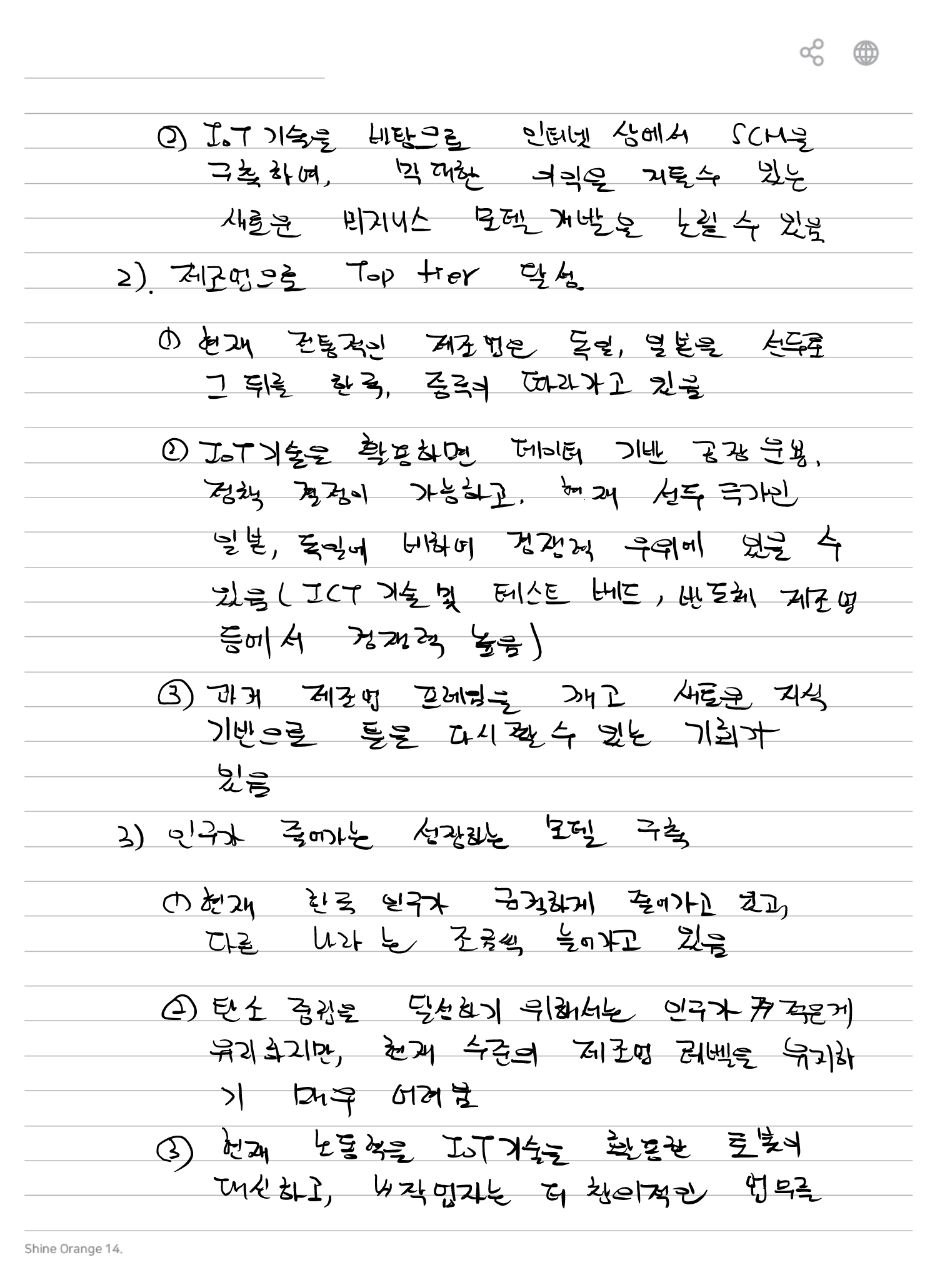 ② IoT 기술을 바탕으로 인터넷 상에서 SCM을
구축하여, 막대한 이익을 거둘수 있는
새로운 비지니스 모델 개발을 노릴 수 있음
2). 제조업으로 Top tier 달성
① 현재 전통적인 제조업은 독일, 일본을 선두로
그 뒤를 한국, 중국이 따라가고 있음
② IoT기술을 활용하면 데이터 기반 공장 운용,
정책 결정이 가능하고, 현재 선두 국가인
일본, 독일에 비하여 경쟁적 우위에 있을 수
있음 ( ICT 기술 및 테스트 베드, 반도체 제조업
등에서 경쟁력 높음)
③ 과거 제조업 프레임을 깨고 새로운 지식
기반으로 틀을 다시 짤 수 있는 기회가
있음
3) 인구가 줄어가는 성장하는 모델 구축
① 현재 한국 인구가 급격하게 줄어가고 있고,
다른 나라는 조금씩 늘어가고 있음
② 탄소 중립을 달성하기 위해서는 인구가 적은게
유리하지만, 현재 수준의 제조업 레벨을 유지하
기 매우 어려움
③ 현재 노동력을 IoT기술을 활용한 로봇이
대신하고, 작업자는 더 창의적인 업무를
Shine Orange 14.